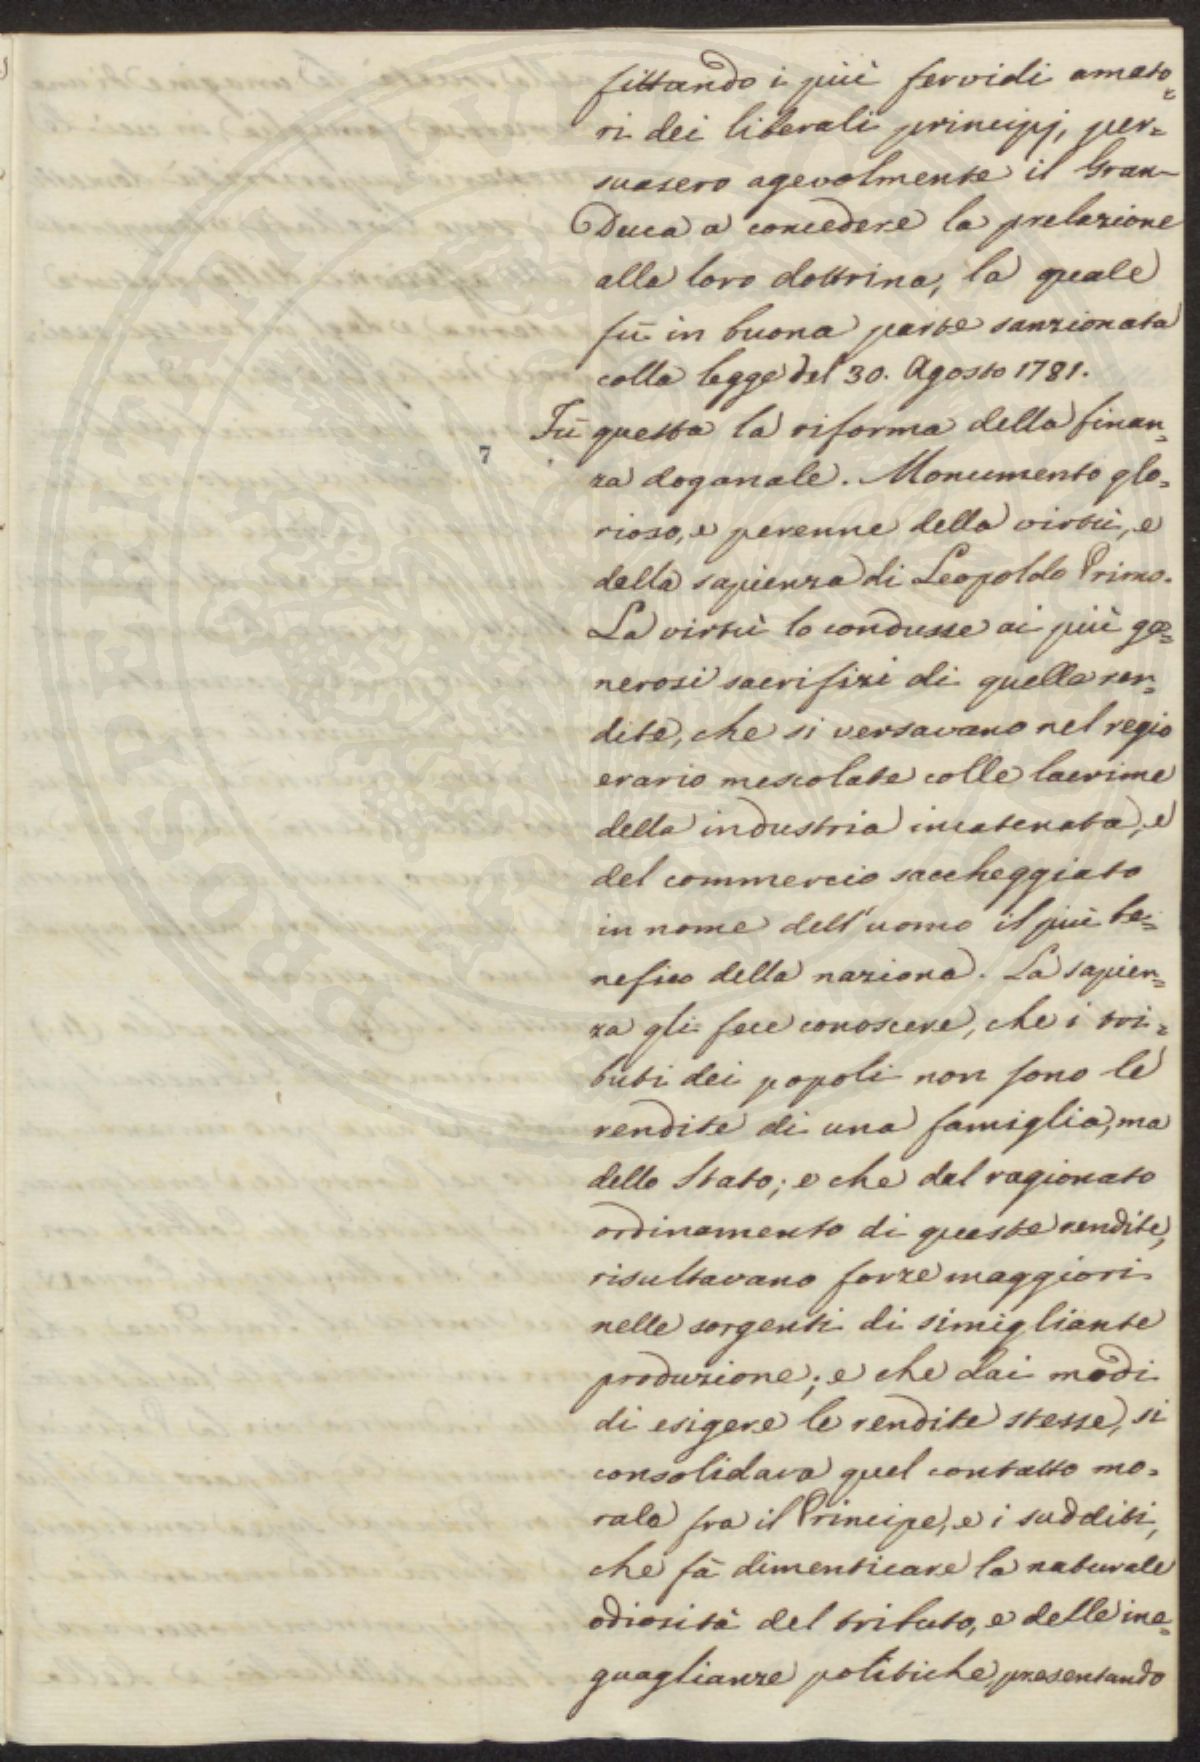 fittando i più fervidi amato=
ri dei liberali principj, per=
suasero agevolmente il Gran-
Duca a concedere la prelazione
alla loro dottrina, la quale
fù in buona parte sanzionata
colla legge del 30. Agosto 1781.
7 Fù questa la riforma della finan=
za doganale. Monumento glo=
rioso, e perenne della virtù, e
della sapienza di Leopoldo Primo.
La virtù lo condusse ai più ge=
nerosi sacrifizi di quelle ren=
dite, che si versavano nel regio
erario mescolate colle lacrime
della industria incatenata, e
del commercio saccheggiato
in nome dell'uomo il più be=
nefico della nazione. La sapien=
za gli fece conoscere, che i tri=
buti dei popoli non sono le
rendite di una famiglia, ma
dello Stato; e che dal ragionato
ordinamento di queste rendite,
risultavano forze maggiori
nelle sorgenti di simigliante
produzione; e che dai modi
di esigere le rendite stesse, si
consolidava quel contatto mo=
rale fra il Principe, e i sudditi,
che fà dimenticare la naturale
odiosità del tributo, e delle ine=
guaglianze politiche, presentando